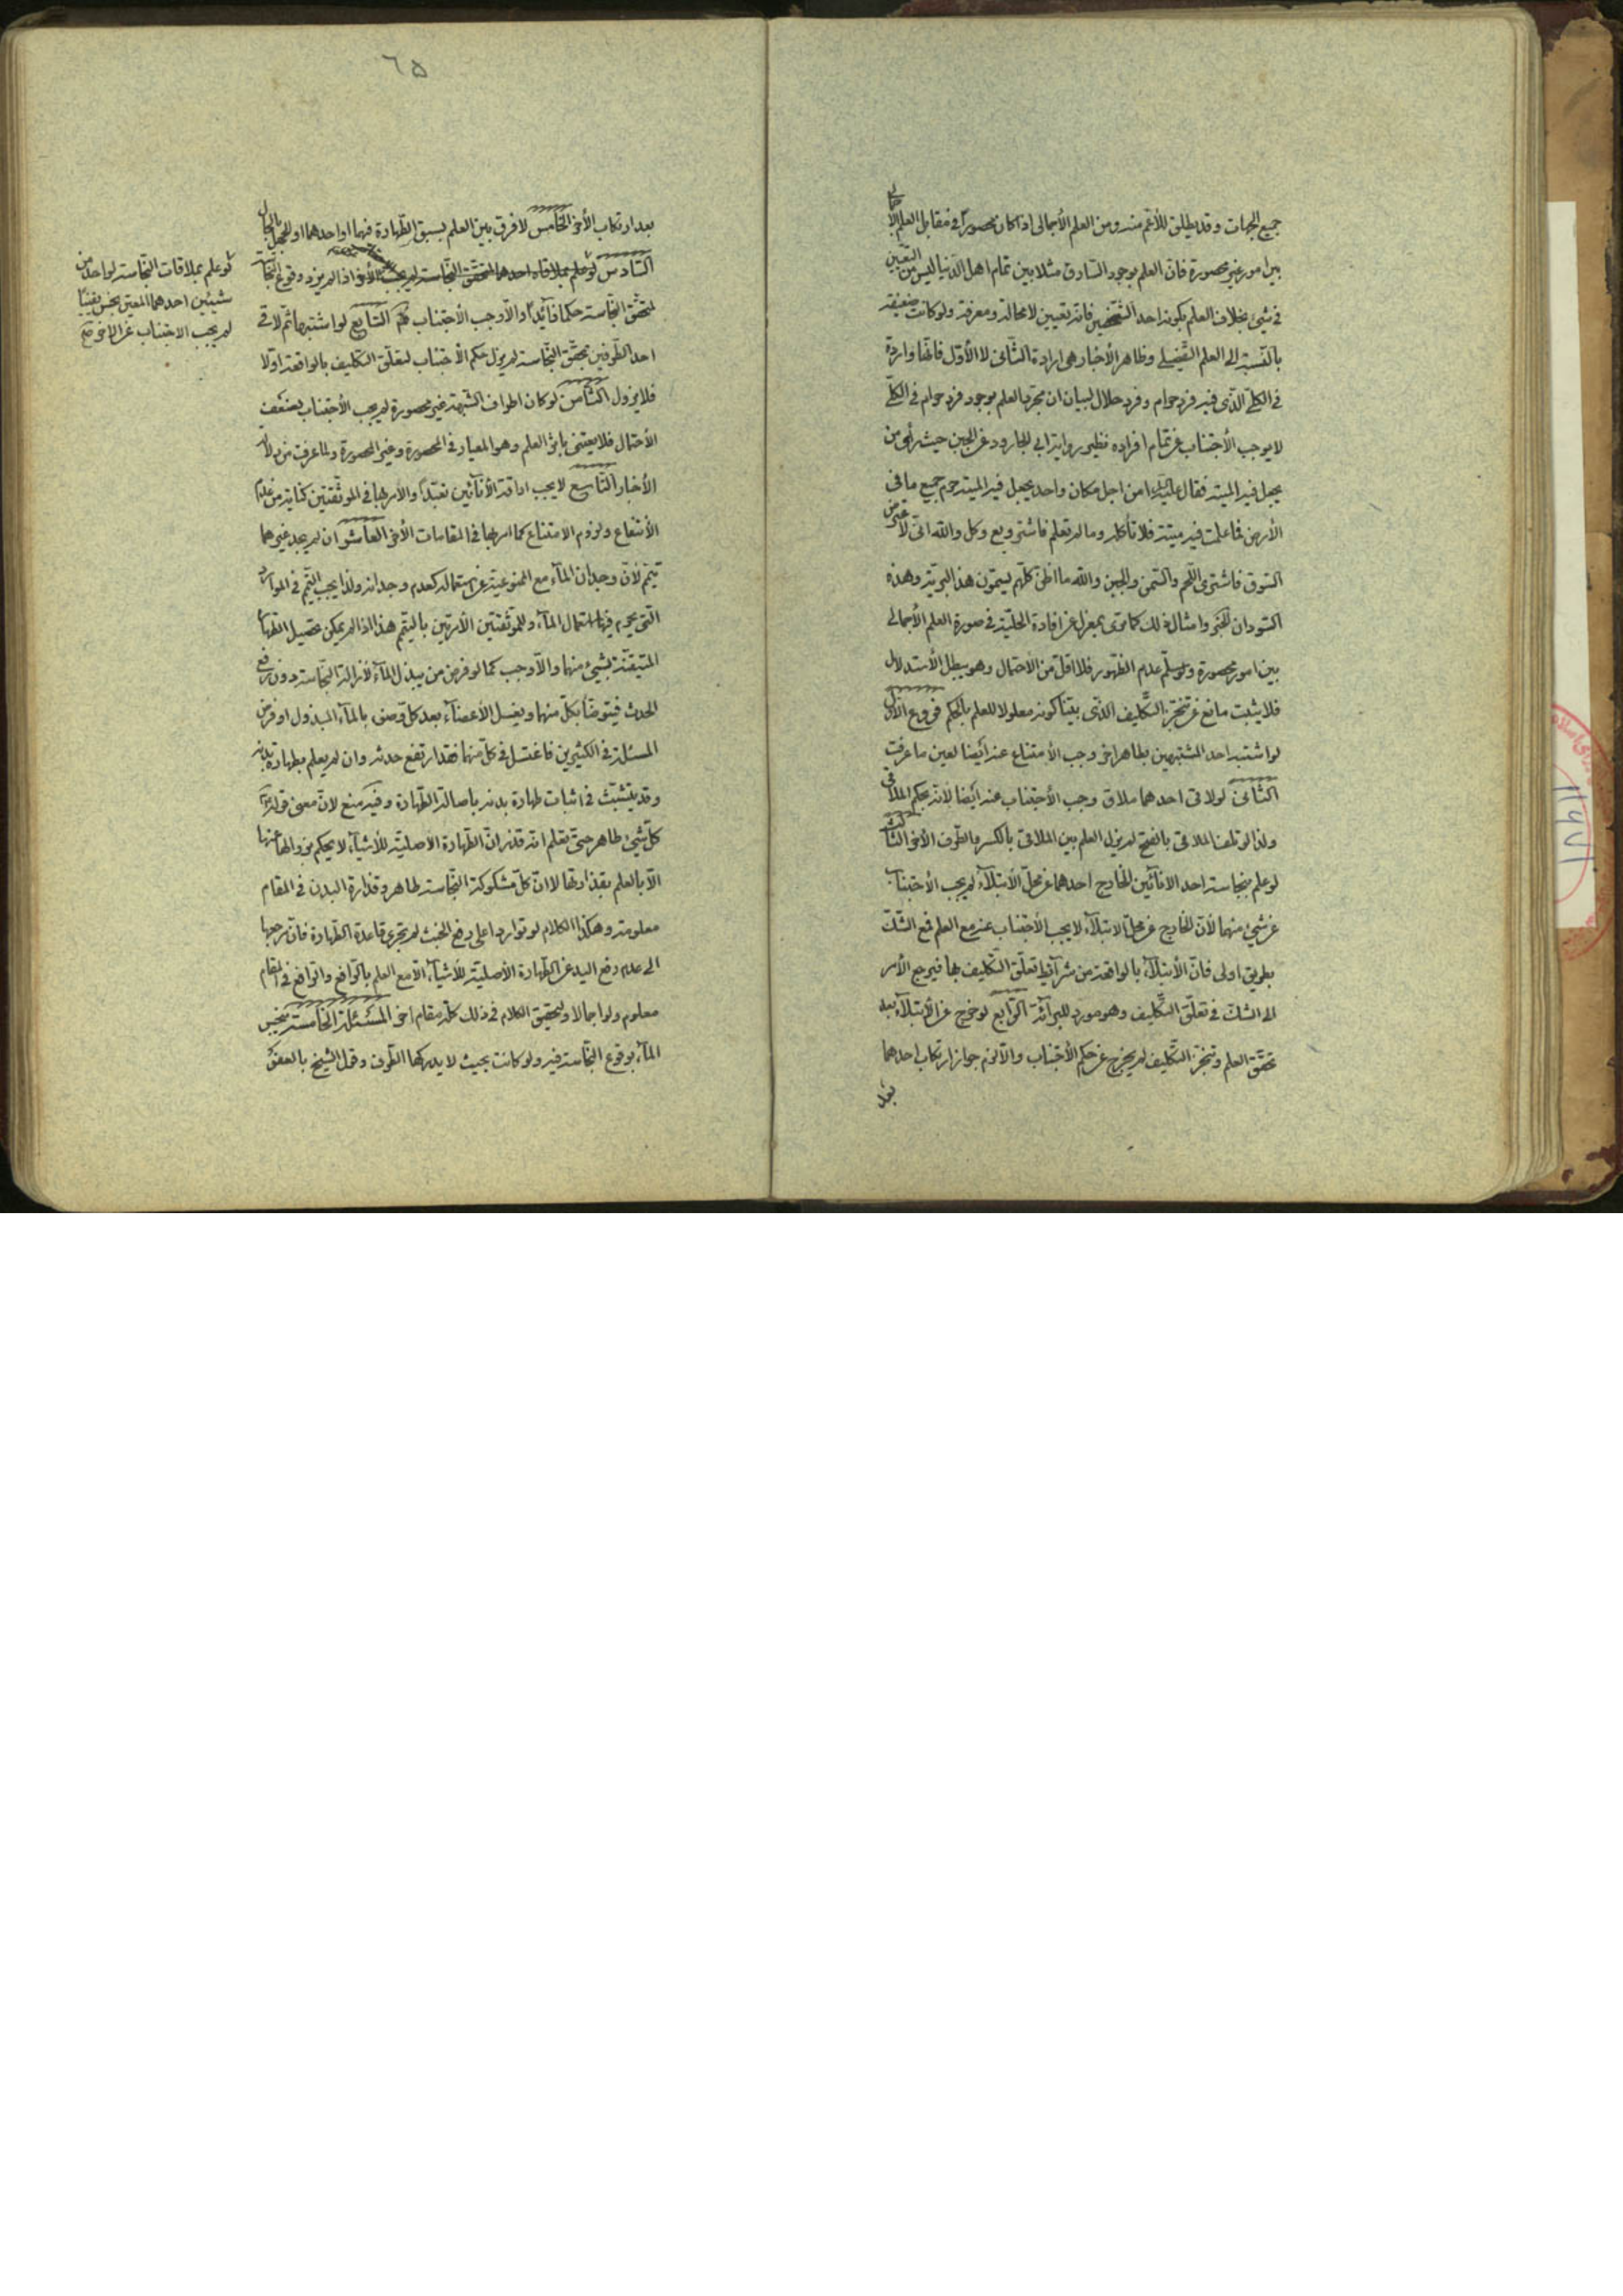 جميع الجهات وقد يطلق للأعم منه ومن العلم الأجمالي اذا كان محصوراً في مقابل العلم الأجمالي
بين امور غير محصورة فان العلم بوجود السارق مثلا بين تمام اهل الدنيا ليس من التعيين
في شيئ بخلاف العلم بكونه احد الشخصين فانه تعيين لا محالة ومعرفة ولو كانت ضعيفة
بالنسبة الى العلم التفصيلي وظاهر الأخبار هي ارادة الثاني لا الأول فانها واردة
في الكلي الذي فيه فرد حرام وفرد حلال لبيان ان مجرد العلم بوجود فرد حرام في الكلي
لا يوجب الأجتناب عن تمام افراده نظير رواية ابي الجارود عن الجبن حيث رأى من
يجعل فيه الميتة فقال امن اجل مكان واحد يجعل فيه الميتة حرم جميع ما في
الأرض فما علمت فيه ميتة فلا تأكله وما لم تعلم فاشتر وبع وكل والله اني لاعترض
السوق فاشترى اللحم والسمن والجبن والله ما اظن كلهم يسمون هذه البرية وهذه
السودان الخبر وامثال ذلك كما ترى بمعزل عن افادة الحلية في صورة العلم الأجمالي
بين امور محصورة ولو سلم عدم الظهور فلا اقل من الأحتمال وهو يبطل الأستدلال
فلا يثبت مانع عن تنجز التكليف الذي بينا كونه معلولا للعلم بالحكم فروع الأول
لو اشتبه احد المشتبهين بطاهر اخر وجب الأمتناع عنه ايضا لعين ما عرفت
الثاني لو لاقى احدهما ملاق وجب الأجتناب عنه ايضا لأنه بحكم الملاقى
ولذا لو تلف الملاقى بالفتح لم يزل العلم بين الملاقي بالكسر والطرف الأخر الثالث
لو علم بنجاسة احد الانائين الخارج احدهما عن محل الأبتلاء لم يجب الأجتناب
عن شيئ منهما لأن الخارج عن محل الابتلاء لا يجب الأجتناب عنه مع العلم فمع الشك
بطريق اولى فان الأبتلاء بالواقعة من شرائط تعلق التكليف بها فيرجع الأمر
الى الشك في تعلق التكليف وهو مورد للبرائة الرابع لو خرج عن الأبتلاء بعد
تحقق العلم وتنجز التكليف لم يخرج عن حكم الأجتناب والا لزم جواز ارتكاب احدهما
بعد
٦٥
بعد ارتكاب الأخر الخامس لا فرق بين العلم بسبق الطهارة فيهما او احدهما او الجهل بالحال
السادس لو علم بملاقاة احدهما المتحقق النجاسة لم يجب الأخر اذا لم يزد وقوع النجاسة
لمتحقق النجاسة حكما زائداً والا وجب الأجتناب السابع لو اشتبها ثم لاقى
احد الطرفين محقق النجاسة لم يزل حكم الأجتناب لتعلق التكليف بالواقعة اولا
فلا يزول الثامن لو كان اطراف الشبهة غير محصورة لم يجب الأجتناب لضعف
الأحتمال فلا يعتنى باثر العلم وهو المعيار في المحصورة وغير المحصورة ولما عرفت من دلالة
الأخبار التاسع لا يجب اراقة الأنائين تعبداً والأمر بها في الموثقتين كناية من عدم
الأنتفاع ولزوم الامتناع كما امر بها في المقامات الأخر العاشر ان لم يجد غيرهما
تيمم لأن وجدان الماء مع الممنوعية عن استعماله كعدم وجدانه ولذا يجب التيمم في الموارد
التي يحرم فيها استعمال الماء وللموثقتين الأمرتين بالتيمم هذا اذا لم يمكن تحصيل الطهارة
المتيقنة بشيئ منهما والا وجب كما لو فرض من يبذل الماء لأزالة النجاسة دون رفع
الحدث فيتوضأ بكل منهما ويغسل الأعضاء بعد كل وضوء بالماء المبذول او فرض
المسئلة في الكثيرين فاغتسل في كل منهما فقد ارتفع حدثه وان لم يعلم بطهارة بدنه
وقد يتشبث في اثبات طهارة بدنه باصالة الطهارة وفيه منع لان معنى قوله
كل شيئ طاهر حتى تعلم انه قذر ان الطهارة الأصلية للأشياء لا يحكم بزوالها عنها
الا بالعلم بقذارتها لا ان كل مشكوكة النجاسة طاهر وقذارة البدن في المقام
معلومة وهكذا الكلام لو تواردا على رفع الخبث لم تجرى قاعدة الطهارة فان مرجعها
الى عدم رفع اليد عن الطهارة الأصلية للأشياء الا مع العلم بالرافع والرافع في المقام
معلوم ولو اجمالا ولتحقيق الكلام في ذلك كله مقام اخر المسئلة الخامسة ينجس
الماء بوقوع النجاسة فيه ولو كانت بحيث لا يدركها الطرف وقول الشيخ بالعفو
لو علم بملاقات النجاسة لواحد من
شيئين احدهما المعين نجس يقينا
لم يجب الاجتناب عن الاخر صح